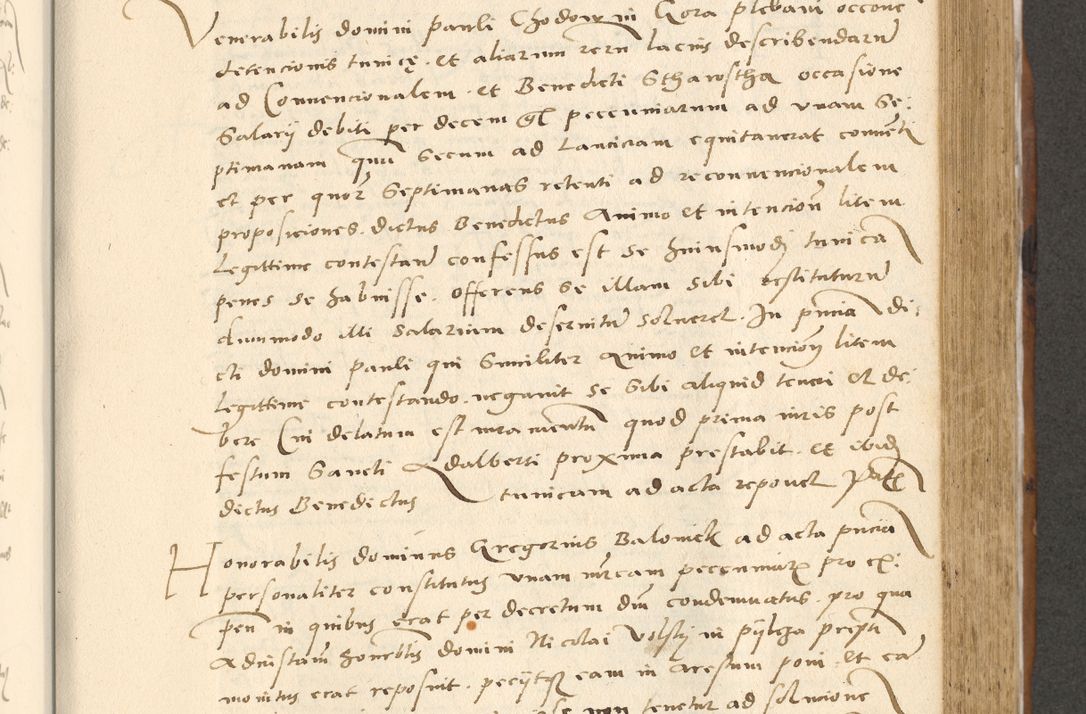 Venerabilis domini Pauli Chodow in Gora plebani occone
detencionis tunicę et aliarum rerum lacius describendarum
ad Conuencionalem et Benedicti Stharostha occasione
Salarij debiti per decem gl pecuniarum ad vnam Se:
ptimanam qui secum ad Lanciciam equitauerat conuenti
et per quor Septimanas retenti ad reconuencionalem
proposiciones. dictus Benedictus Animo et intencion litem
Legittime contestan confessus est se huiusmodi tunica
penes se habuisse. offerens se illam sibi restituturum
dummodo illi salarium deseruitum solueret. In pncia di:
cti domini Pauli qui Similiter Animo et intencion litem
legittime contestando. negauit se sibi aliquid teneri et de:
bere Cui delatum est iuramentum quod prima iuris post
festum Sancti Adalberti proxima prestabit. et ibidem
dictus Benedictus tunicam ad acta reponet
Honorabilis dominus Gregorius Balowiek ad acta pncia
personaliter constitutus vnam mrcam pecuniarum pro ex:
pen in quibus erat per decretum dni condemnatus. pro qua
Ad instam honorblis domini Nicolai Volski in
monitus erat reposuit. pecijtque eam in Arestum poni. et ea
se non tenetur ad solucione